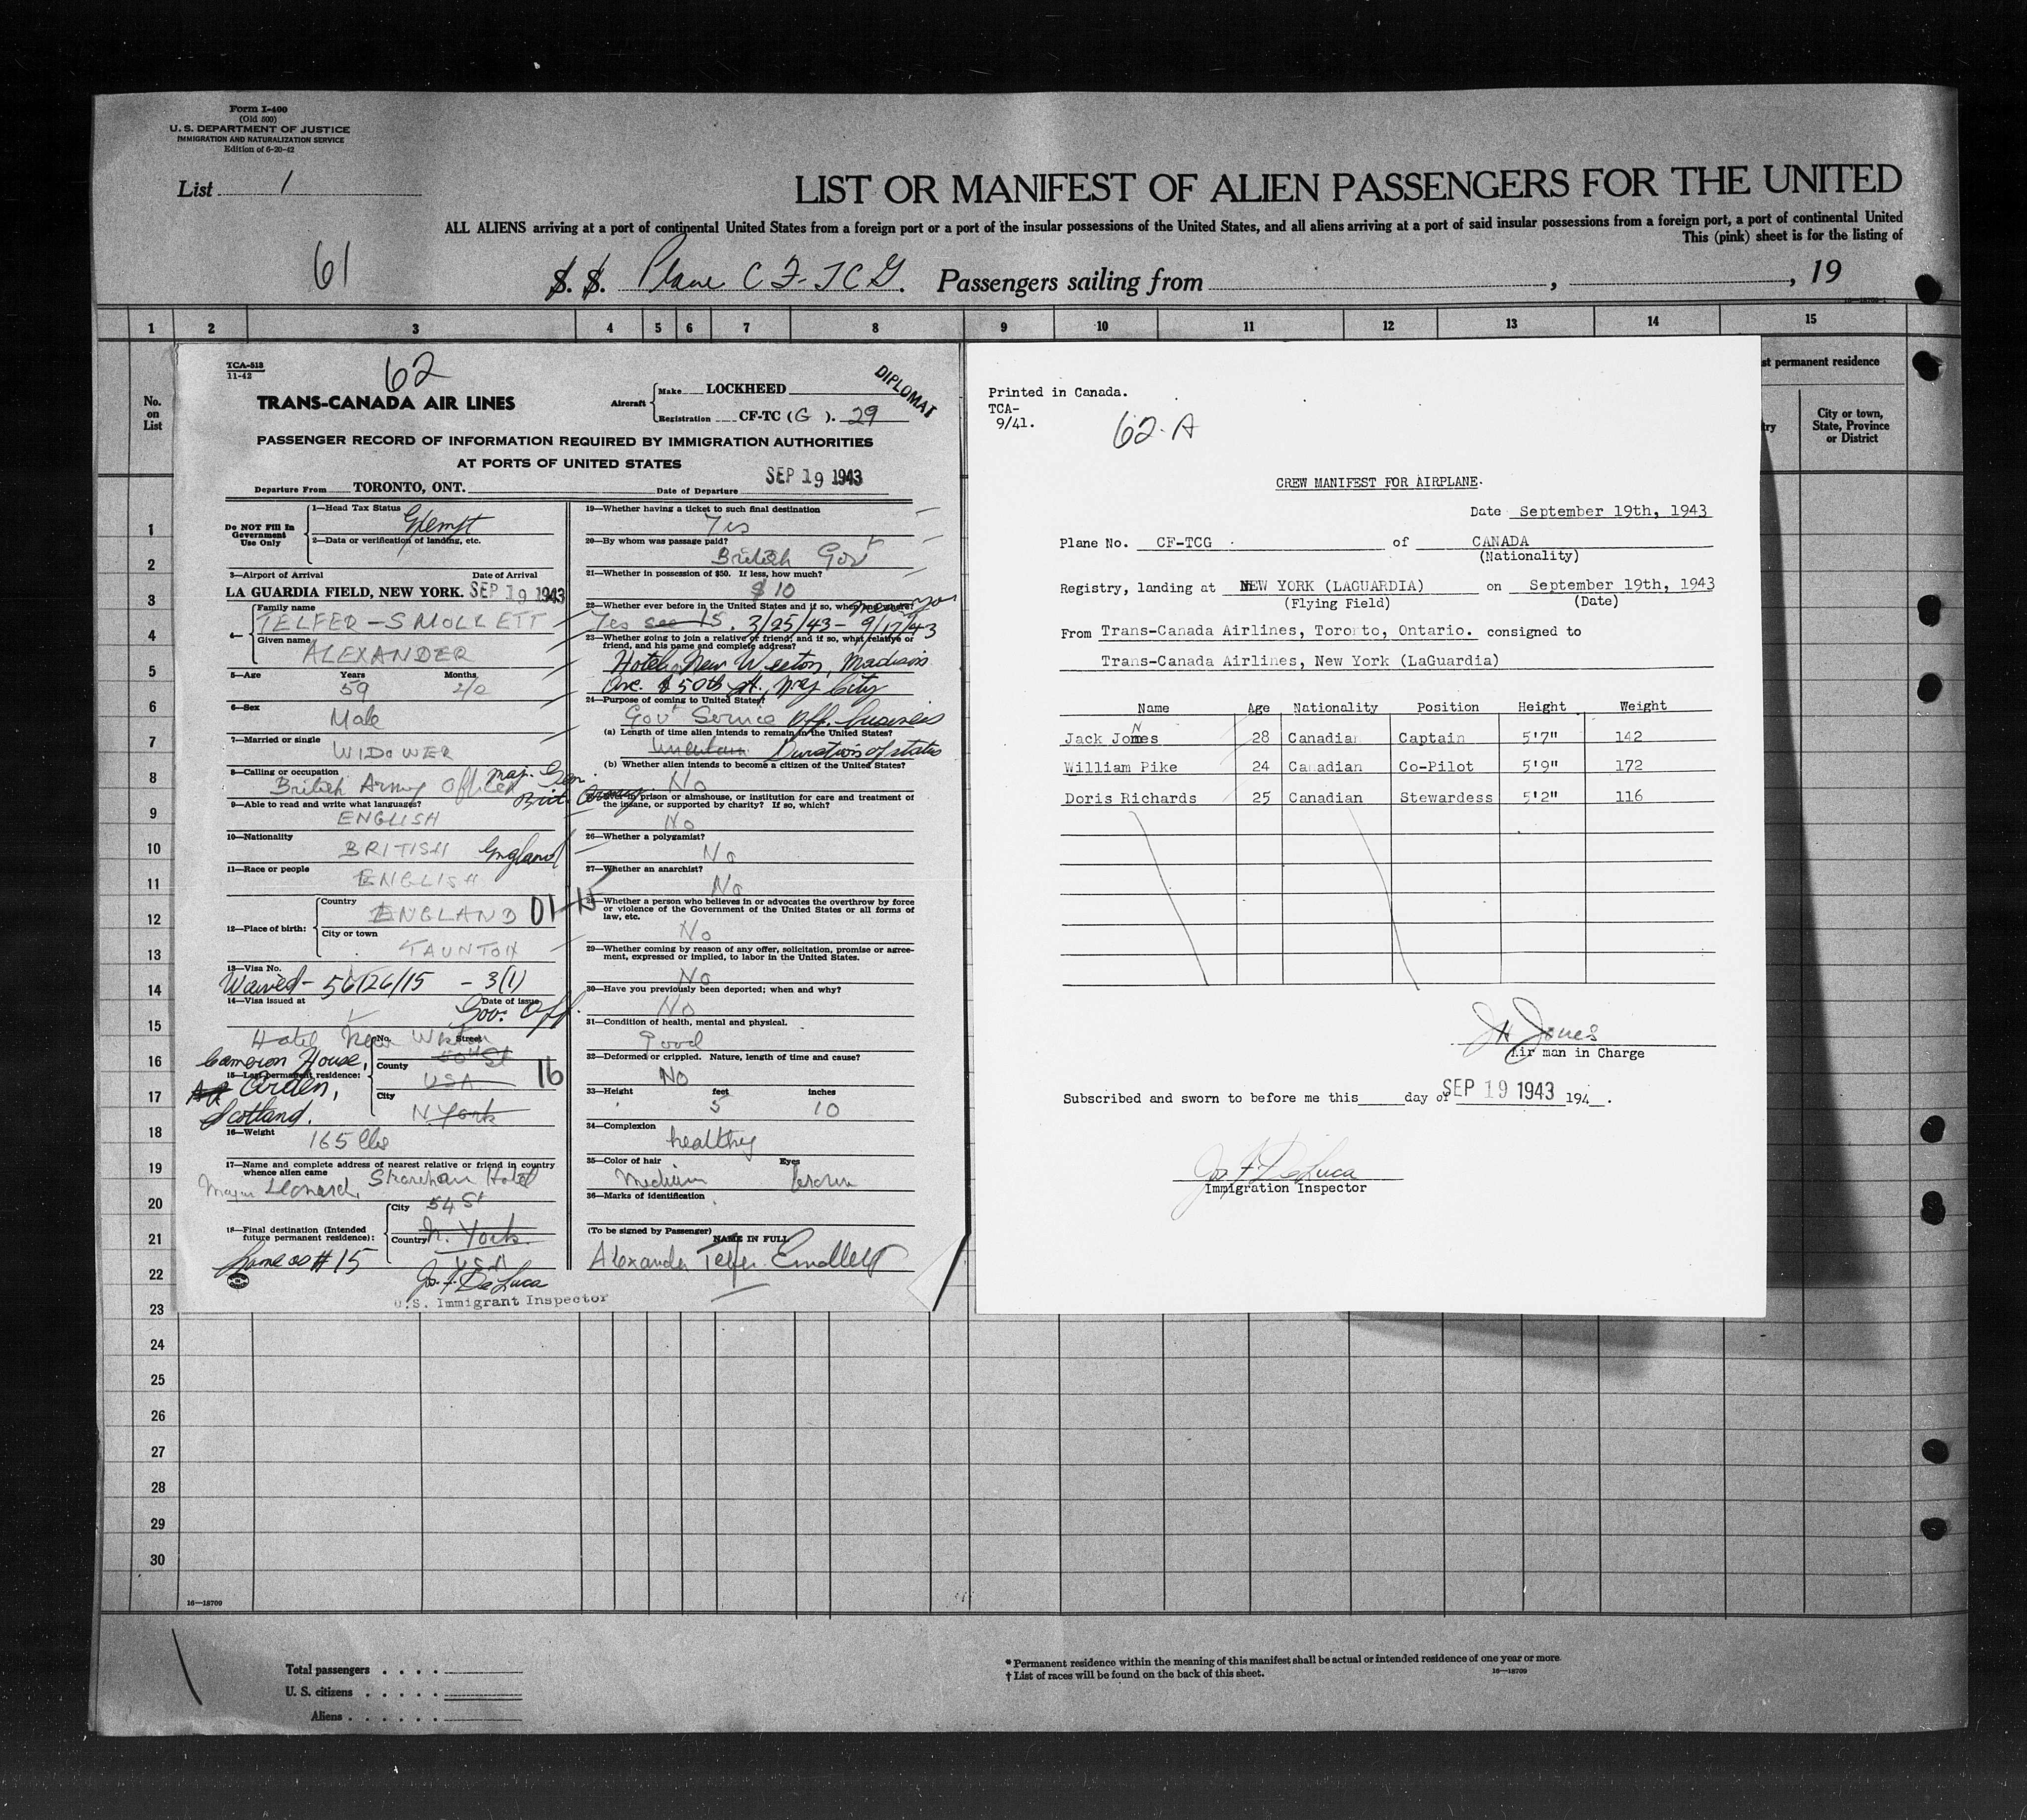 Form I-400
(Old 500)
U. S. DEPARTMENT OF JUSTICE
IMMIGRATION AND NATURALIZATION SERVICE
Edition of 6-20-42
List 1
LIST OR MANIFEST OF ALIEN PASSENGERS FOR THE UNITED
ALL ALIENS arriving at a port of continental United States from a foreign port or a port of the insular possessions of the United States, and all aliens arriving at a port of said insular possessions from a foreign port, a port of continental United
This (pink) sheet is for the listing of
61
S. S. Plane CF-TCG. Passengers sailing from , , 19
1 2 3 4 5 6 7 8 9 10 11 12 13 14 15
No.
on
List
st permanent residence
ry
City or town,
State, Province
or District
TCA-513
11-42
62
TRANS-CANADA AIR LINES
Aircraft
Make LOCKHEED
Registration CF-TC (G). 29
DIPLOMAT
PASSENGER RECORD OF INFORMATION REQUIRED BY IMMIGRATION AUTHORITIES
AT PORTS OF UNITED STATES
Departure From TORONTO, ONT. Date of Departure SEP 19 1943
Do NOT Fill In
Government
Use Only
1—Head Tax Status Exempt
2—Data or verification of landing, etc.
3—Airport of Arrival Date of Arrival
LA GUARDIA FIELD, NEW YORK. SEP 19 1943
4—
Family name
TELFER-SMOLLETT
Given name
ALEXANDER
5—Age Years Months
59 2/0
6—Sex
Male
7—Married or single
WIDOWER
8—Calling or occupation
British Army Officer Maj. Gen.
Brit. Army
9—Able to read and write what languages?
ENGLISH
10—Nationality
BRITISH England
11—Race or people
ENGLISH
12—Place of birth:
Country
ENGLAND
City or town
TAUNTON
13—Visa No.
Waived - 56126/15 - 3(1)
14—Visa issued at Date of issue
Gov. Off.
Hotel New Weston
No. Street
50th St
Cameron House,
15—Last permanent residence:
County
USA 16
Arden,
City
N York
Scotland.
16—Weight
165 lbs
17—Name and complete address of nearest relative or friend in country
whence alien came
Major Leonard,
54 St
18—Final destination (Intended
future permanent residence):
City
N. York
Country
USA
Same as #15
Jos. F. DeLuca
U.S. Immigrant Inspector
19—Whether having a ticket to such final destination
Yes
20—By whom was passage paid?
British Govt
21—Whether in possession of $50. If less, how much?
$10
22—Whether ever before in the United States and if so, when and where?
Yes see 15. 3/25/43 - 9/17/43
23—Whether going to join a relative or friend, and if so, what relative or
friend, and his name and complete address?
Hotel New Weston, Madison
Ave. & 50th St., N.Y. City
24—Purpose of coming to United States?
Govt Service Off. business
(a) Length of time alien intends to remain in the United States?
Uncertain Duration of status
(b) Whether alien intends to become a citizen of the United States?
No
in prison or almshouse, or institution for care and treatment of
the insane, or supported by charity? If so, which?
No
26—Whether a polygamist?
No
27—Whether an anarchist?
No
28—Whether a person who believes in or advocates the overthrow by force
or violence of the Government of the United States or all forms of
law, etc.
No
29—Whether coming by reason of any offer, solicitation, promise or agree-
ment, expressed or implied, to labor in the United States.
No
30—Have you previously been deported; when and why?
No
31—Condition of health, mental and physical.
Good
32—Deformed or crippled. Nature, length of time and cause?
No
33—Height feet inches
5 10
34—Complexion
healthy
35—Color of hair Eyes
Medium brown
36—Marks of identification
(To be signed by Passenger)
NAME IN FULL
Alexander Telfer Smollett
Printed in Canada.
TCA-
9/41.
62-A
CREW MANIFEST FOR AIRPLANE.
Date September 19th, 1943
Plane No. CF-TCG of CANADA
(Nationality)
Registry, landing at NEW YORK (LAGUARDIA) on September 19th, 1943
(Flying Field) (Date)
From Trans-Canada Airlines, Toronto, Ontario. consigned to
Trans-Canada Airlines, New York (LaGuardia)
Name Age Nationality Position Height Weight
Jack Jones 28 Canadian Captain 5'7" 142
William Pike 24 Canadian Co-Pilot 5'9" 172
Doris Richards 25 Canadian Stewardess 5'2" 116
JH Jones
Air man in Charge
Subscribed and sworn to before me this day of SEP 19 1943 194 .
Jos F DeLuca
Immigration Inspector
1
2
3
4
5
6
7
8
9
10
11
12
13
14
15
16
17
18
19
20
21
22
23
24
25
26
27
28
29
30
16—18709
Total passengers . . . .
U. S. citizens . . . . .
Aliens . . . . . .
* Permanent residence within the meaning of this manifest shall be actual or intended residence of one year or more.
† List of races will be found on the back of this sheet.
16—18709